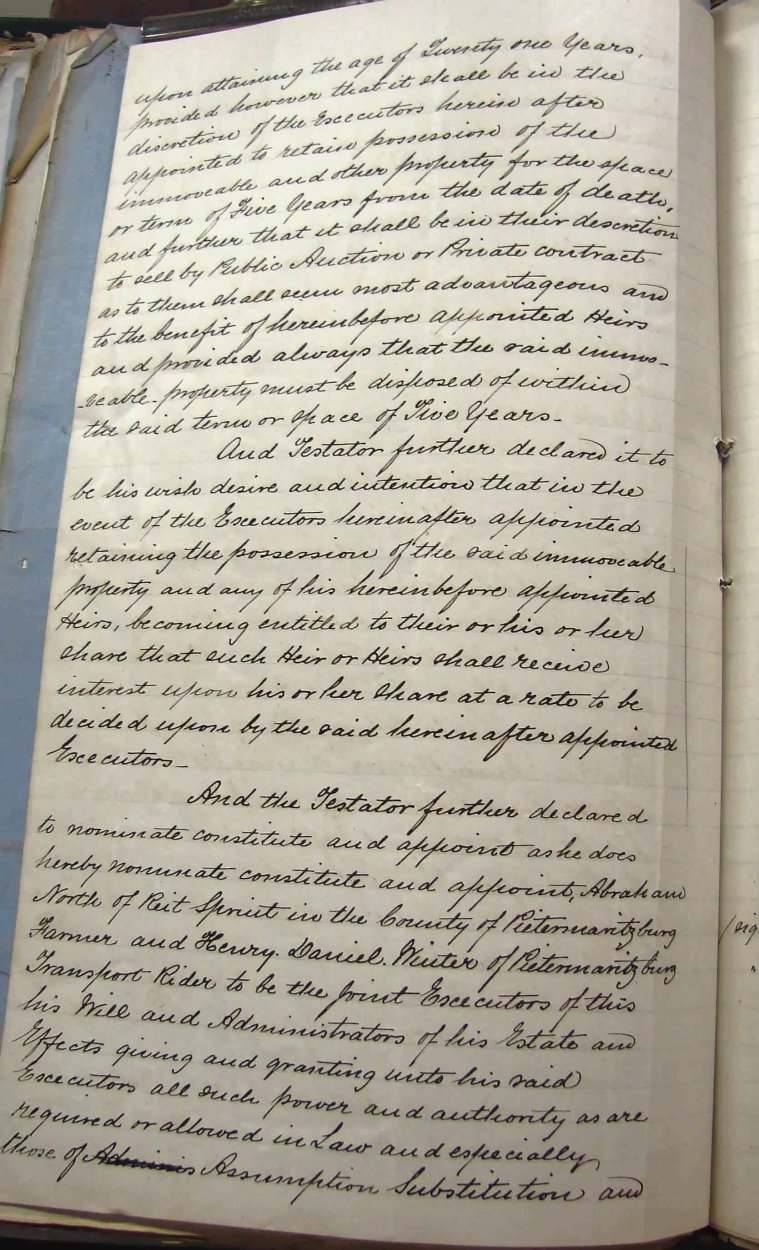 upon attaining the age of Twenty one Years,
provided however that it shall be in the
discretion of the Executors herein after
appointed to retain possession of the
immoveable and other property for the space
or term of Five Years from the date of death,
and further that it shall be in their descretion
to sell by Public Auction or Private contract
as to them shall seem most advantageous and
to the benefit of hereinbefore appointed Heirs
and provided always that the said immo-
-veable property must be disposed of within
the said term or space of Five Years -
And Testator further declared it to
be his wish desire and intention that in the
event of the Executors hereinafter appointed
retaining the possession of the said immoveable
property and any of his hereinbefore appointed
Heirs, becoming entitled to their or his or her
share that such Heir or Heirs shall receive
interest upon his or her share at a rate to be
decided upon by the said herein after appointed
Executors -
And the Testator further declared
to nominate constitute and appoint as he does
hereby nominate constitute and appoint, Abraham
North of Reit Spruit in the County of Pietermaritzburg
Farmer and Henry. Daniel. Winter of Pietermaritzburg
Transport Rider to be the joint Executors of this
his Will and Administrators of his Estate and
Effects giving and granting unto his said
Executors all such power and authority as are
required or allowed in Law and especially
those of Adminis Assumption Substitution and
/sig
"